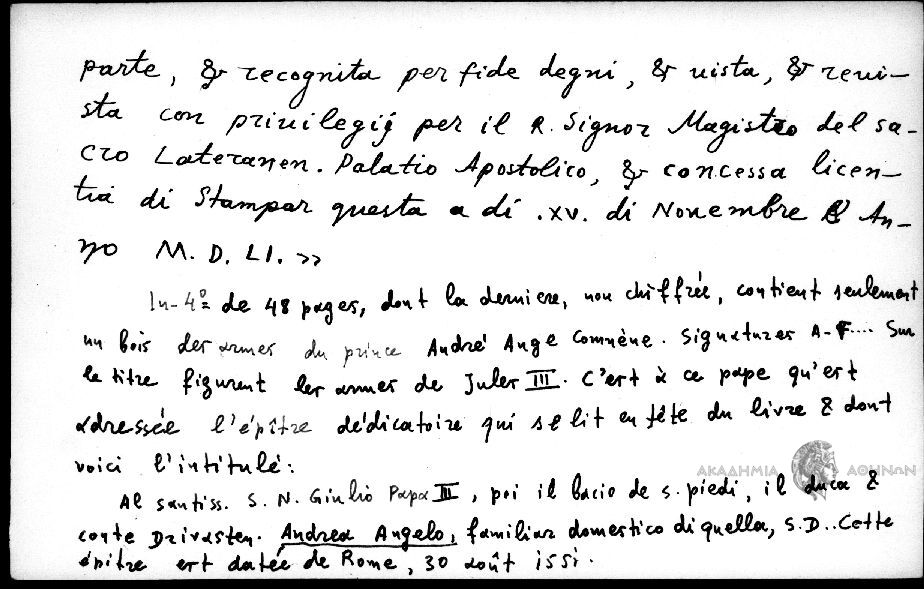 parte, & recognita per fide degni, & uista, & reui-
sta con priuilegij per il R. Signor Magistro del sa-
cro Lateranen. Palatio Apostolico, & concessa licen-
tia di Stampar questa a di .xv. di Nouembre l'An-
no M. D. LI. >>
In-4º de 48 pages, dont la derniere, non chiffrée, contient seulement
un bois des armes du prince André Ange Comnène. Signatures A-F.... Sur
le titre figurent les armes de Jules III. C'est à ce pape qu'est
adressée l'épître dédicatoire qui se lit en tête du livre & dont
voici l'intitulé:
ΑΚΑΔΗΜΙΑ ΑΘΗΝΩΝ
Al santiss. S. N. Giulio Papa III, poi il bacio de s. piedi, il duca &
conte Drivasten. Andrea Angelo, familiar domestico di quella, S.D.. Cette
épitre est datée de Rome, 30 août 1551.